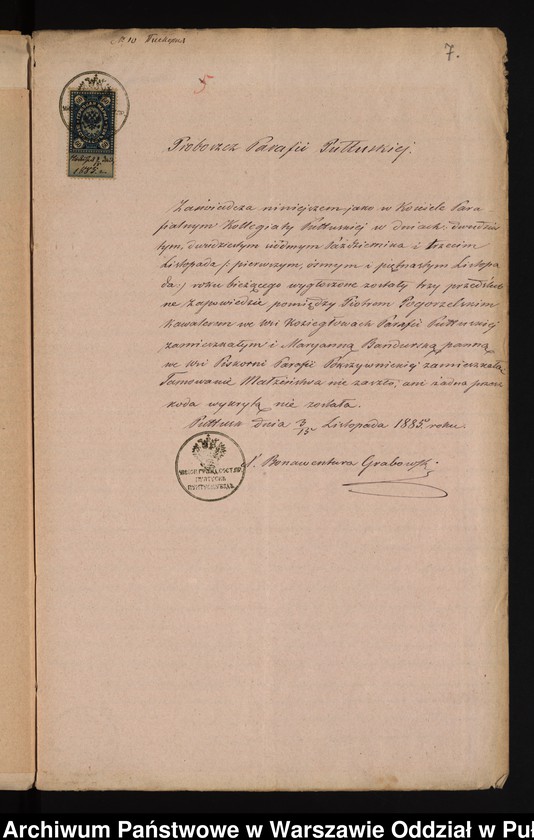 7.
5
Proboszcz Parafii Pułtuskiej.
1885 r.
Zaświadcza niniejszem jako w Kościele Para
fialnym Kollegiaty Pułtuskiej w dniach: dwudzies
tym, dwudziestym siódmym Października i trzecim
Listopada /: pierwszym, ósmym i piętnastym Listopa
da:/ roku bieżącego wygłoszone zostały trzy przedślub
ne zapowiedzie pomiędzy Piotrem Pogorzelskim
Kawalerem we wsi Koziegłowach Parafii Pułtuskiej
zamieszkałym i Maryanną Bandurską panną
we wsi Piskorni Parafii Pokrzywnickiej zamieszkałą
Tamowanie Małżeństwa nie zaszło, ani żadna przesz
koda wykrytą nie została.
Pułtusk dnia 3/15 Listopada 1885. roku.
X. Bonawentura Grabowski.
Archiwum Państwowe w Warszawie Oddział w Puł